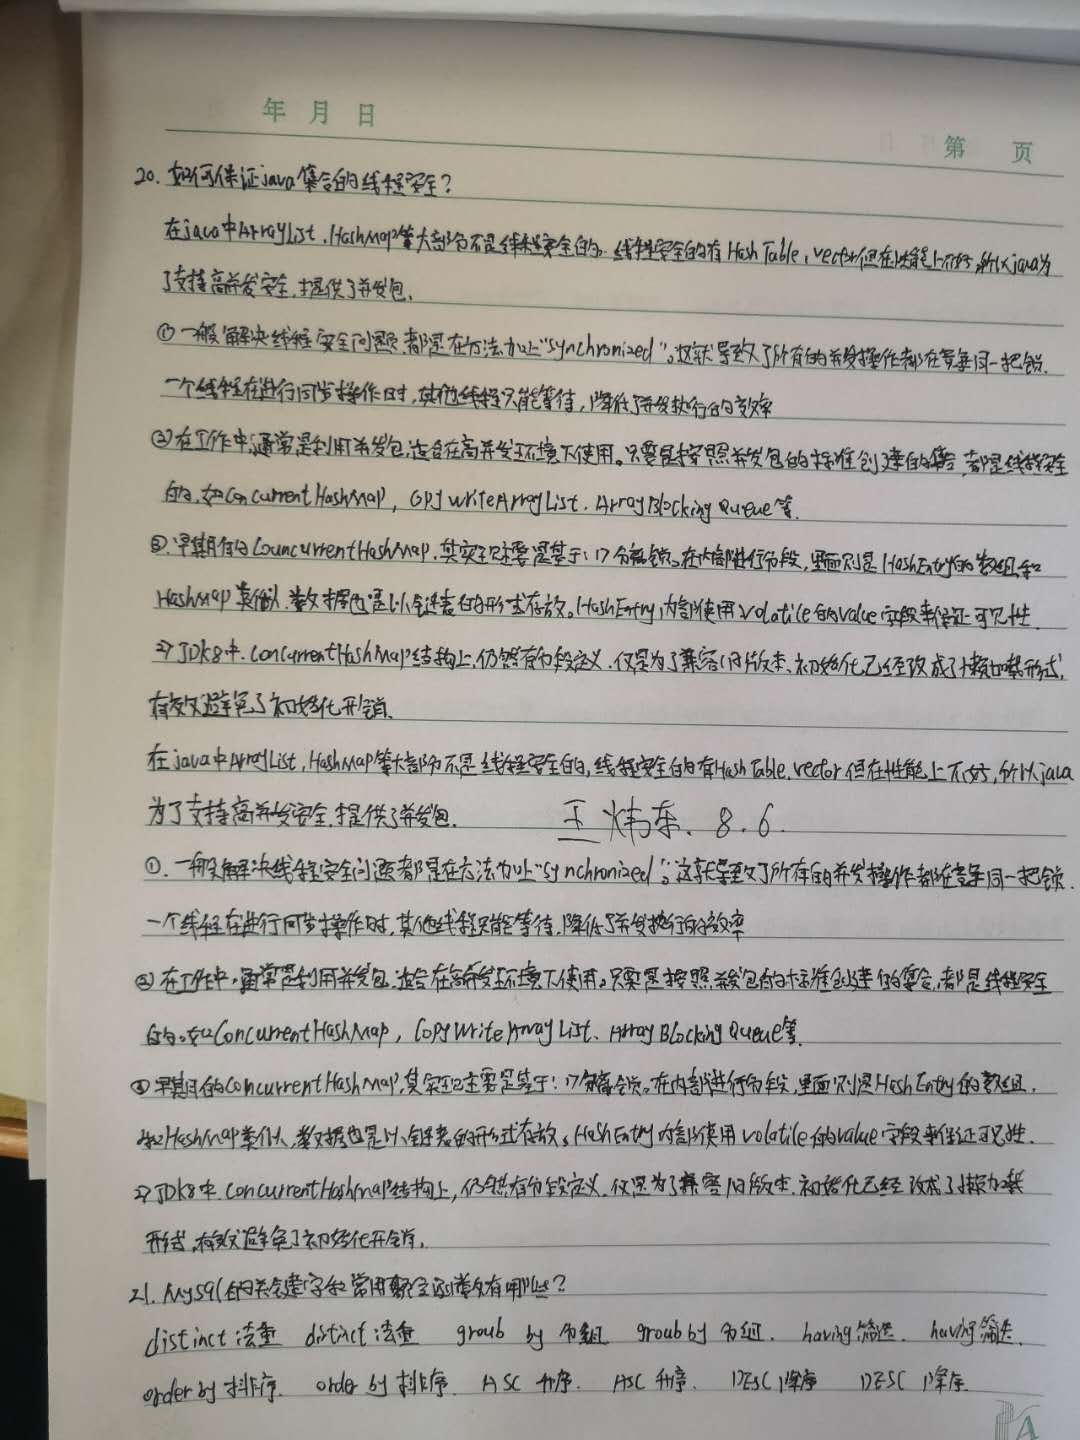 年 月 日
第 页
20. 如何保证java集合的线程安全？
在java中ArrayList、HashMap等大部分不是线程安全的。线程安全的有HashTable，vector但在性能上不好，所以java为
了支持高并发安全，提供了并发包。
① 一般解决线程安全问题都是在方法加上"synchronized"。这就导致了所有的并发操作都在竞争同一把锁.
一个线程在进行同步操作时，其他线程只能等待，降低了并发执行的效率
②在工作中，通常是利用并发包，适合在高并发环境下使用。只要是按照并发包的标准创建的集合，都是线程安全
的，如ConcurrentHashMap，CopyWriteArrayList、ArrayBlocking Queue等.
③.早期的ConcurrentHashMap.其实现主要是基于：1>分离锁。在内部进行分段，里面则是HashEntry的数组和
HashMap类似、数据也是以链表的形式存放。HashEntry内部使用volatile的value字段来保证可见性.
2>JDK8中.ConcurrentHashMap结构上，仍然有分段定义，仅是为了兼容旧版本、初始化已经改成了懒加载形式，
有效避免了初始化开销.
在java中ArrayList，HashMap等大部分不是线程安全的，线程安全的有HashTable，vector但在性能上不好，所以java
为了支持高并发安全，提供了并发包.
王炜东. 8.6.
①. 一般解决线程安全问题都是在方法加上"synchronized"。这就导致了所有的并发操作都在竞争同一把锁.
一个线程在进行同步操作时，其他线程只能等待，降低了并发执行的效率
② 在工作中，通常是利用并发包，适合在高并发环境下使用。只要是按照并发包的标准创建的集合，都是线程安全
的。如ConcurrentHashMap，CopyWriteArrayList、ArrayBlocking Queue等.
③ 早期的ConcurrentHashMap，其实现主要是基于：1>分离锁。在内部进行分段，里面则是HashEntry的数组.
和HashMap类似、数据也是以链表的形式存放。HashEntry内部使用volatile的value字段来保证可见性.
2>JDK8中.ConcurrentHashMap结构上，仍然有分段定义，仅是为了兼容旧版本.初始化已经改成了懒加载
形式，有效避免了初始化开销.
21. MySql的关键字和常用函数有哪些？
distinct 去重 distinct 去重 groub by 分组 groub by 分组. having筛选. having筛选.
order by 排序. order by 排序. ASC 升序. ASC 升序. DESC 降序 DESC 降序.